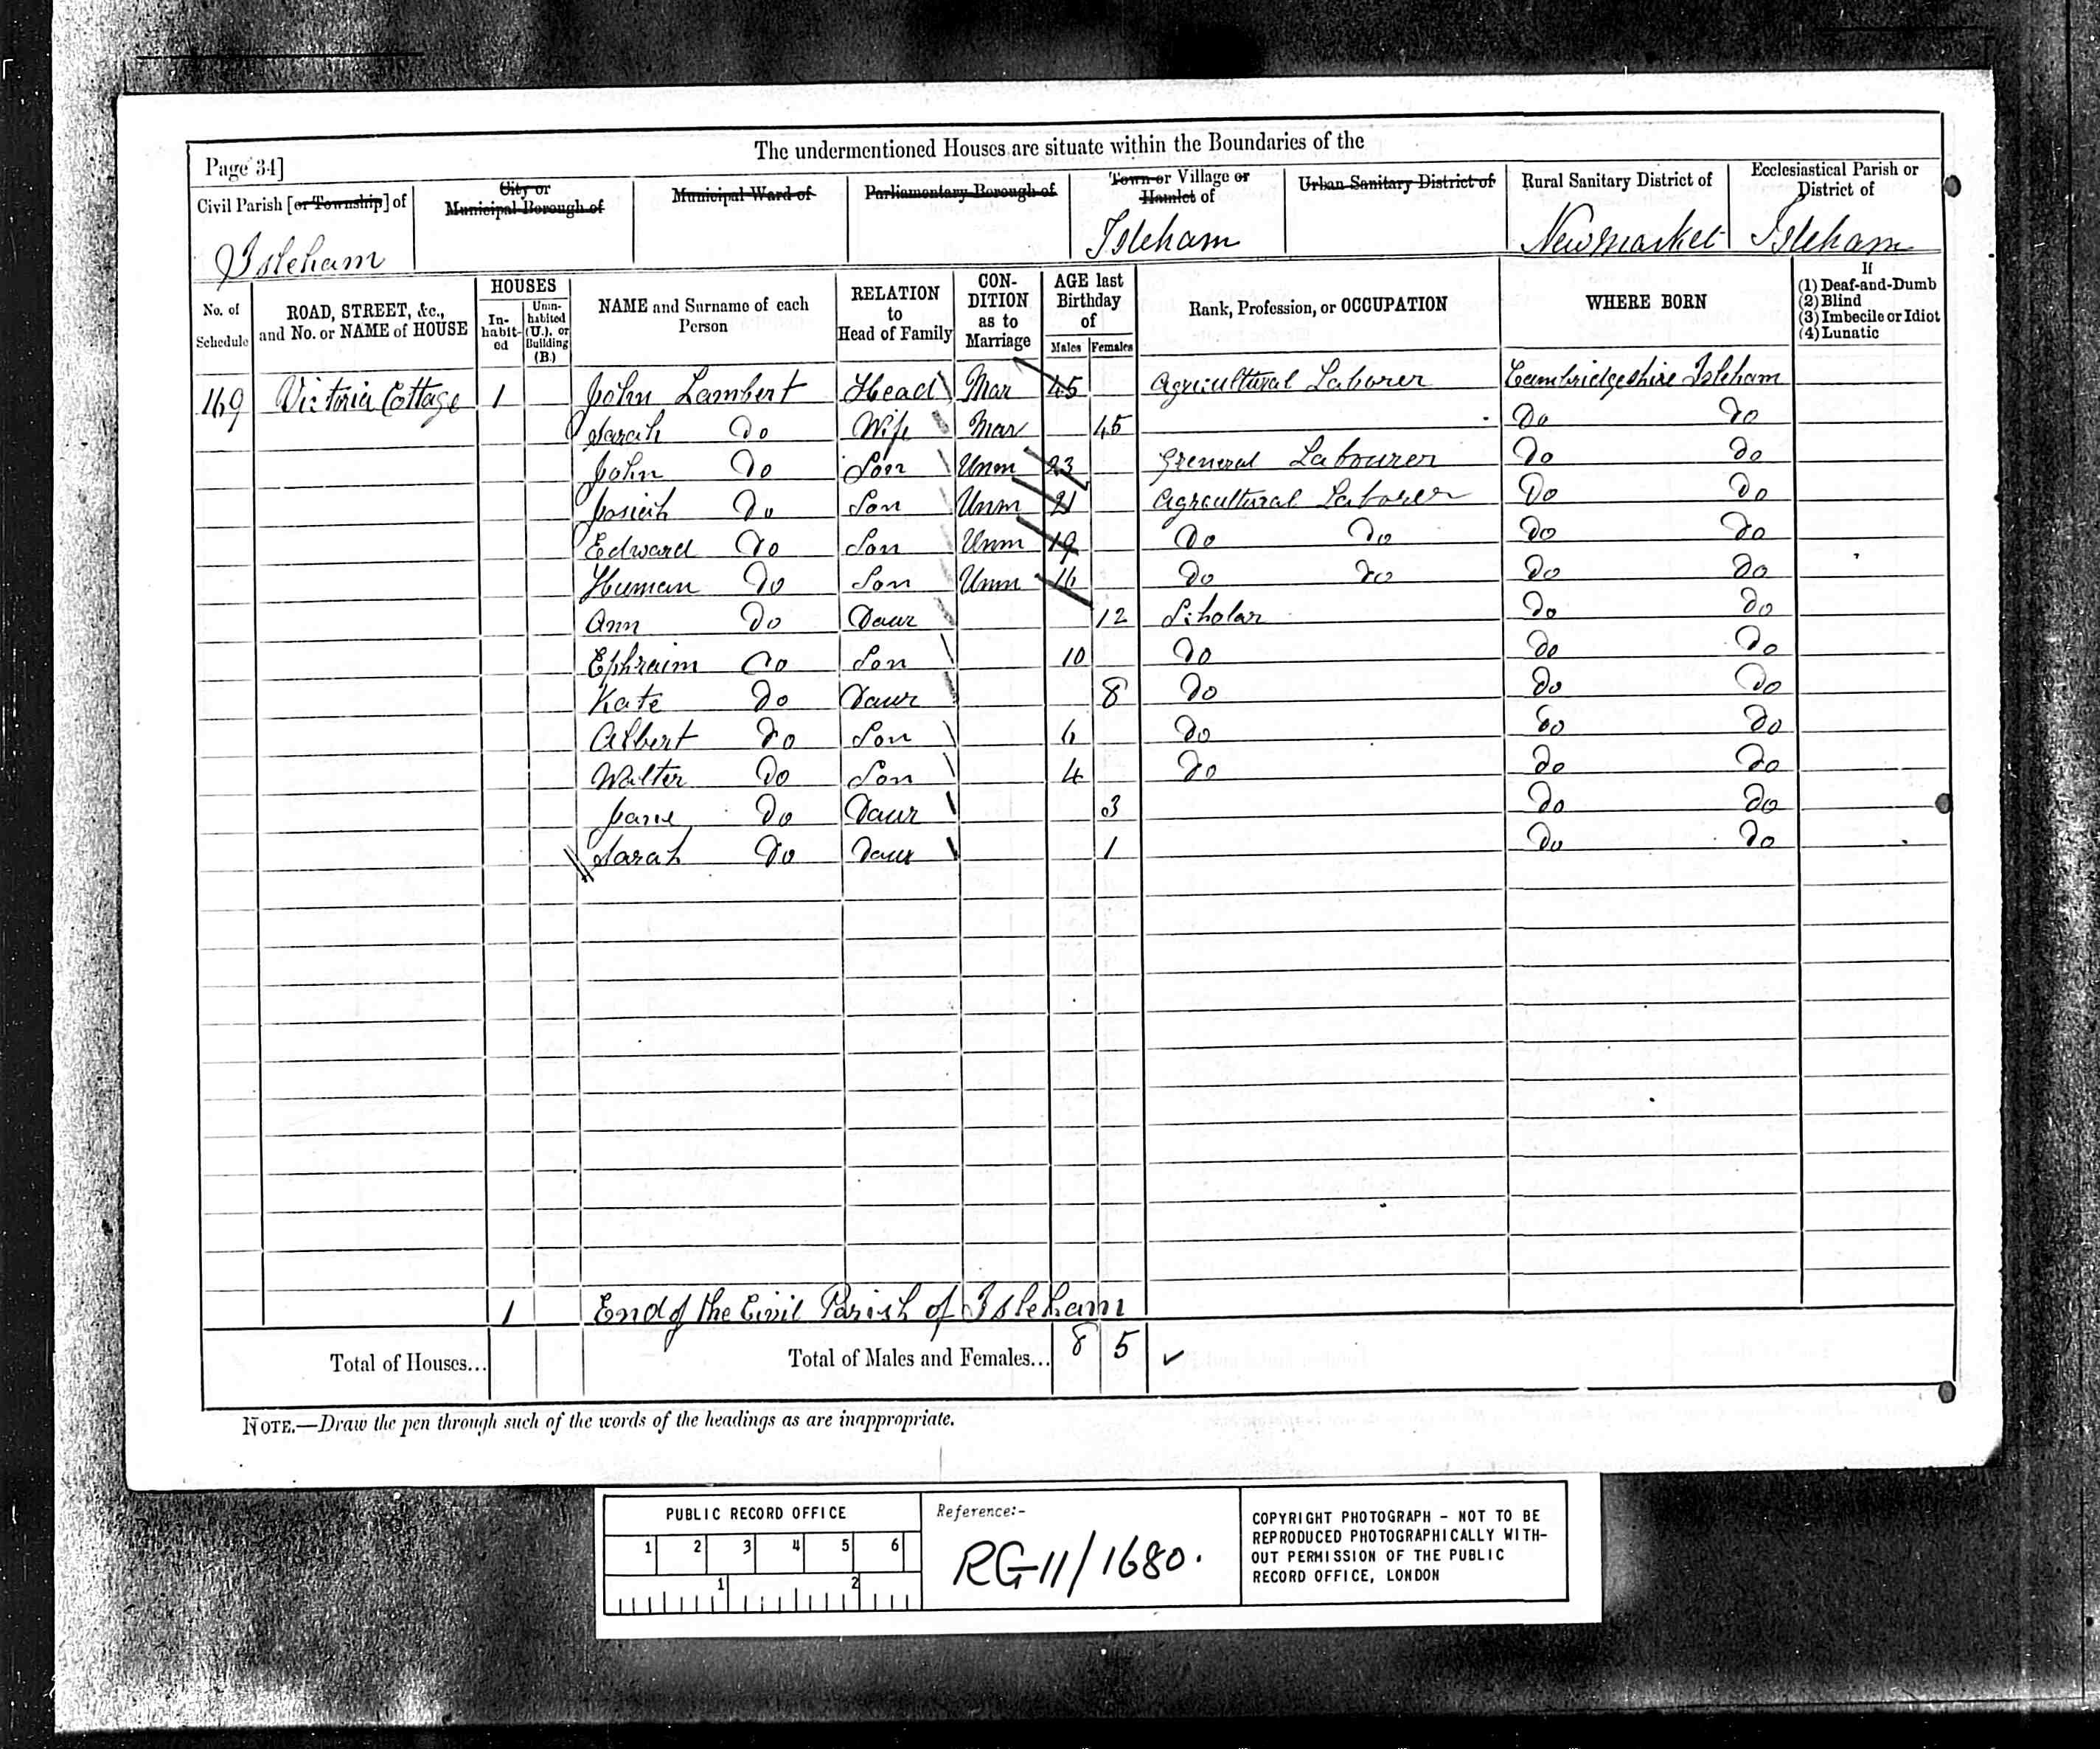 The undermentioned Houses are situate within the Boundaries of the
Page 34]
Civil Parish [or Township] of
City or Municipal Borough of
Municipal Ward of
Parliamentary Borough of
Town or Village or Hamlet of
Urban Sanitary District of
Rural Sanitary District of
Ecclesiastical Parish or District of
Isleham Isleham Newmarket Isleham
No. of Schedule
ROAD, STREET, &c., and No. or NAME of HOUSE
HOUSES
In-habit-ed
Unin-habited (U.), or Building (B.)
NAME and Surname of each Person
RELATION to Head of Family
CON-DITION as to Marriage
AGE last Birthday of
Males Females
Rank, Profession, or OCCUPATION
WHERE BORN
If
(1) Deaf-and-Dumb
(2) Blind
(3) Imbecile or Idiot
(4) Lunatic
169 Victoria Cottage 1 John Lambert Head Mar 45 Agricultural Laborer Cambridgeshire Isleham
Sarah Do Wife Mar 45 Do Do
John Do Son Unm 23 General Labourer Do Do
Josiah Do Son Unm 21 Agricultural Laborer Do Do
Edward Do Son Unm 19 Do Do Do Do
Human Do Son Unm 16 Do Do Do Do
Ann Do Daur 12 Scholar Do Do
Ephraim Do Son 10 Do Do Do
Kate Do Daur 8 Do Do Do
Albert Do Son 6 Do Do Do
Walter Do Son 4 Do Do Do
Jane Do Daur 3 Do Do
Sarah Do Daur 1 Do Do
1 End of the Civil Parish of Isleham
Total of Houses... Total of Males and Females... 8 5
NOTE.—Draw the pen through such of the words of the headings as are inappropriate.
PUBLIC RECORD OFFICE
1 2 3 4 5 6
1 2
Reference:-
RG11/1680.
COPYRIGHT PHOTOGRAPH - NOT TO BE
REPRODUCED PHOTOGRAPHICALLY WITH-
OUT PERMISSION OF THE PUBLIC
RECORD OFFICE, LONDON